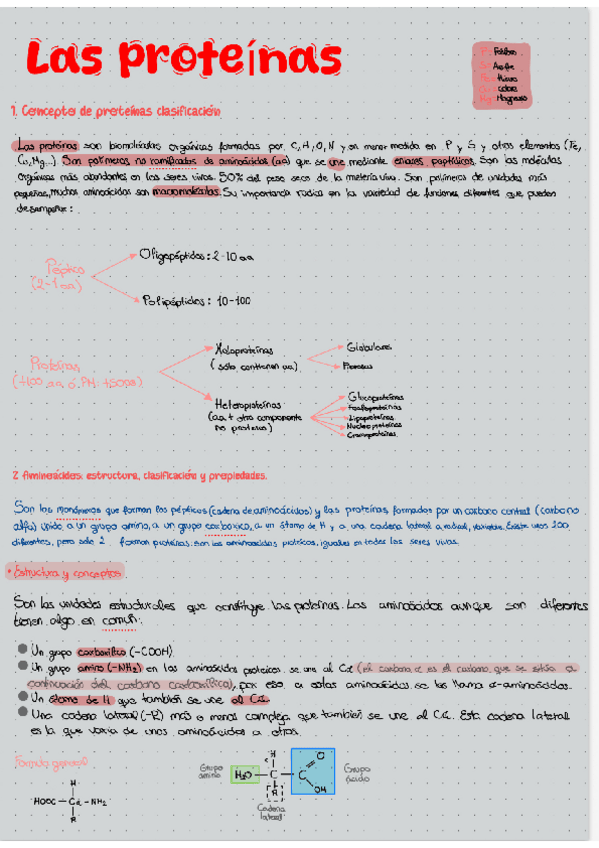 Las proteínas
P: Fósforo
S: Azufre
Fe: Hierro
Cu: cobre
Mg: Magnesio
1. Concepto de proteínas clasificación
Las proteínas son biomoléculas orgánicas formadas por C, H, O, N y en menor medida en P y S y otros elementos (Fe,
Cu, Mg...) Son polímeros no ramificados de aminoácidos (aa) que se une mediante enlaces peptídicos. Son las moléculas
orgánicas más abundantes en los seres vivos. 50% del peso seco de la materia viva. Son polímeros de unidades más
pequeñas, muchos aminoácidos son macromoléculas. Su importancia radica en la variedad de funciones diferentes que pueden
desempeñar:
Oligopéptidos: 2-10 aa
Péptido
Polipéptidos: 10-100
Holoproteínas
(sólo contienen aa)
Globulares
Fibrosas
Proteínas
Heteroproteínas
(aa + otro componente
no proteico)
Glucoproteínas
Fosfoproteínas
Lipoproteínas
Nucleoproteínas
Cromoproteínas
2 Aminoácidos: estructura, clasificación y propiedades.
Son los monómeros que forman los péptidos (cadena de aminoácidos) y las proteínas, formados por un carbono central (carbono
alfa) unido a un grupo amino, a un grupo carboxico, a un átomo de H y a una cadena lateral o radical, variable. Existe unos 200
diferentes, pero sólo 2 forman proteínas: son los aminoácidos proteicos, iguales en todos los seres vivos.
• Estructura y conceptos
Son las unidades estructurales que constituye las proteínas. Los aminoácidos aunque son diferentes
tienen algo en común:
Un grupo carboxílico (-COOH)
Un grupo amino (-NH2) en los aminoácidos proteicos se une al Cα (el carbono α es el carbono que se sitúa a
continuación del carbono carboxílico), por eso a estos aminoácidos se les llama α-aminoácidos.
Un átomo de H que también se une al Cα.
Una cadena lateral (-R) más o menos compleja que también se une al Cα. Esta cadena lateral
es la que varía de unos aminoácidos a otros.
Formula general
H
HOOC - Cα - NH2
R
Grupo
amino
H
H2O - C - C
O
OH
R
Cadena
lateral
Grupo
ácido